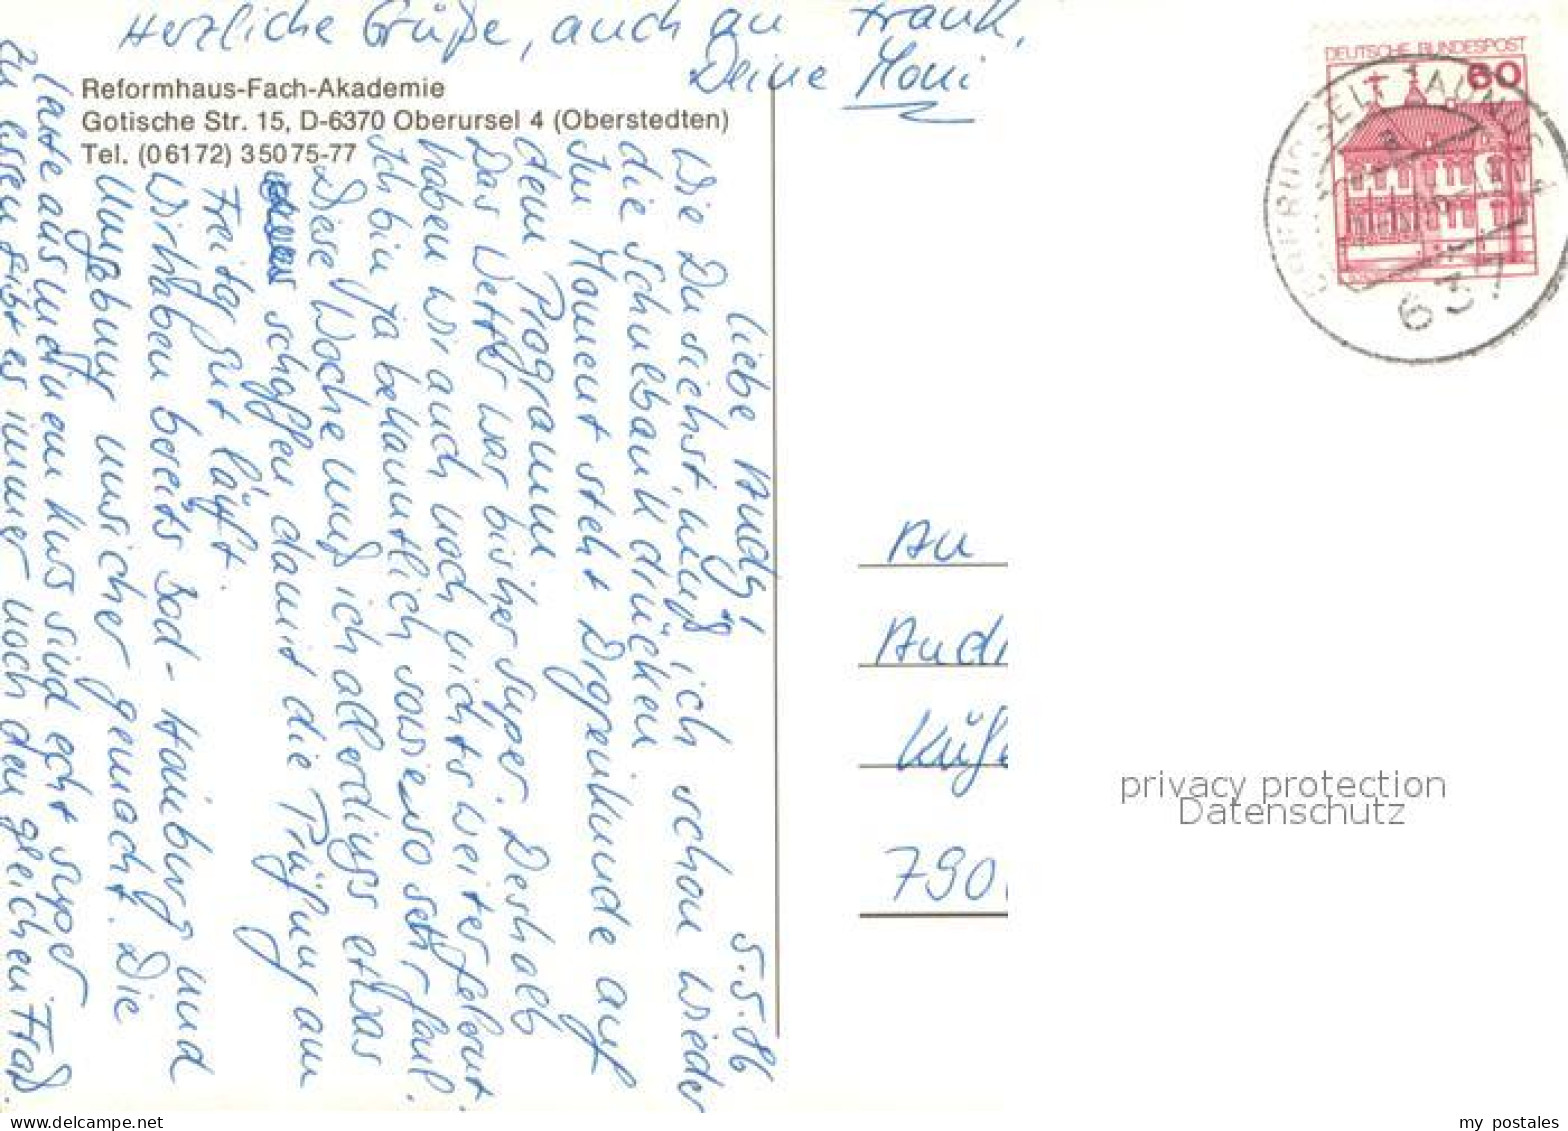 Herzliche Grüße, auch an Frank,
Deine Moni
Reformhaus-Fach-Akademie
Gotische Str. 15, D-6370 Oberursel 4 (Oberstedten)
Tel. (06172) 35075-77
5.5.86
Liebe Andy,
Wie Du siehst, muß ich schon wieder
die Schulbank drücken
Im Moment steht Digenkunde auf
dem Programm
Das Wetter war bisher super. Deshalb
haben wir auch noch nichts weiter gelernt.
Ich bin ja bekanntlich sowieso sehr faul.
Diese Woche muß ich allerdings etwas
schaffen damit die Prüfung am
Freitag gut läuft.
Wir haben bereits Bad-Homburg und
Umgebung unsicher gemacht. Die
Leute aus meinem Kurs sind echt super
Zu essen gibt es immer noch den gleichen Fraß.
DEUTSCHE BUNDESPOST
60
OBERURSEL TAUNUS 4
637
An
Andr
Küh
790
privacy protection
Datenschutz
www.delcampe.net
my_postales